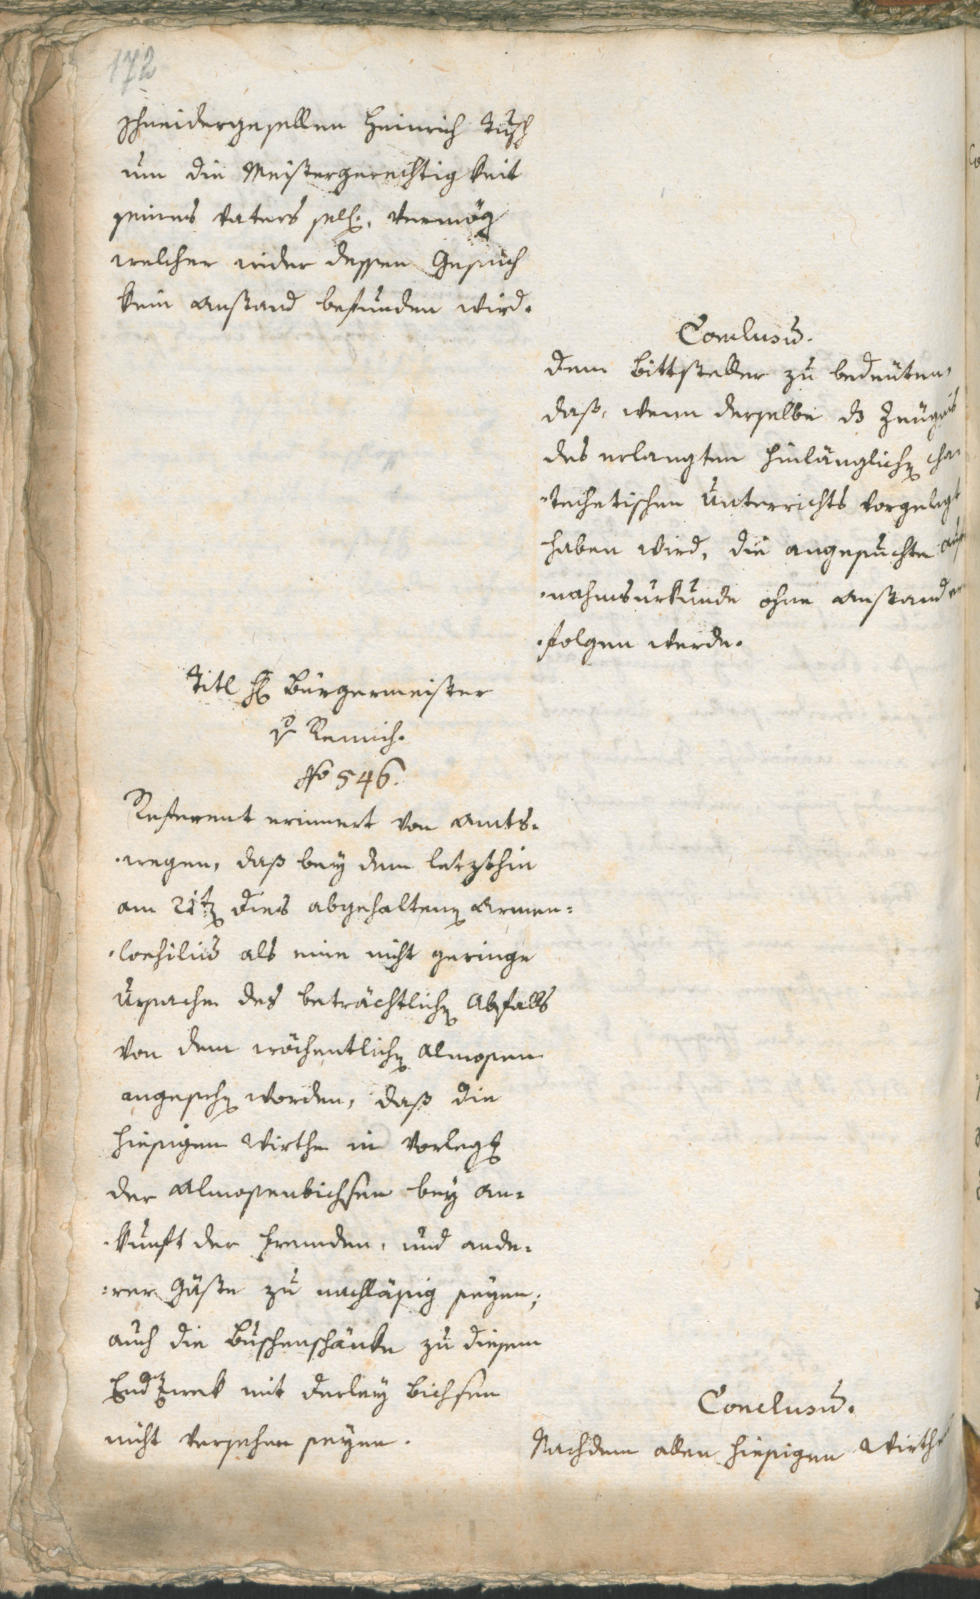 172
Schneidergesellen Heinrich Tusch
um die Meistergerechtigkeit
seines Vaters sel., vermög
welcher wider dessen Gesuch
kein Anstand befunden wird.
Conclusum.
Dem Bittsteller zu bedeuten,
daß, wenn derselbe das Zeugnis
des erlangten hinlänglichen cha-
-techetischen Unterrichts vorgelegt
haben wird, die angesuchte Auf-
-nahmsurkunde ohne Anstand er-
-folgen werde.
Titl H. Bürgermeister
v Remich.
No 546.
Referent erinnert von Amts-
-wegen, daß bey dem letzthin
am 21ten dies abgehaltenen Armen-
-Consilius als eine nicht geringe
Ursache des beträchtlichen Abfalls
von dem wöchentlichen Almosen
angesehen worden, daß die
hiesigen Wirthe in Vorlegung
der Almosenbichsen bey An-
-kunft der Fremden, und ande-
-rer Gäste zu nachläßig seyen;
auch die Buschenschänke zu diesem
Endzweck mit derley Bichsen
nicht versehen seyen.
Conclusum.
Nachdem allen hiesigen Wirthen